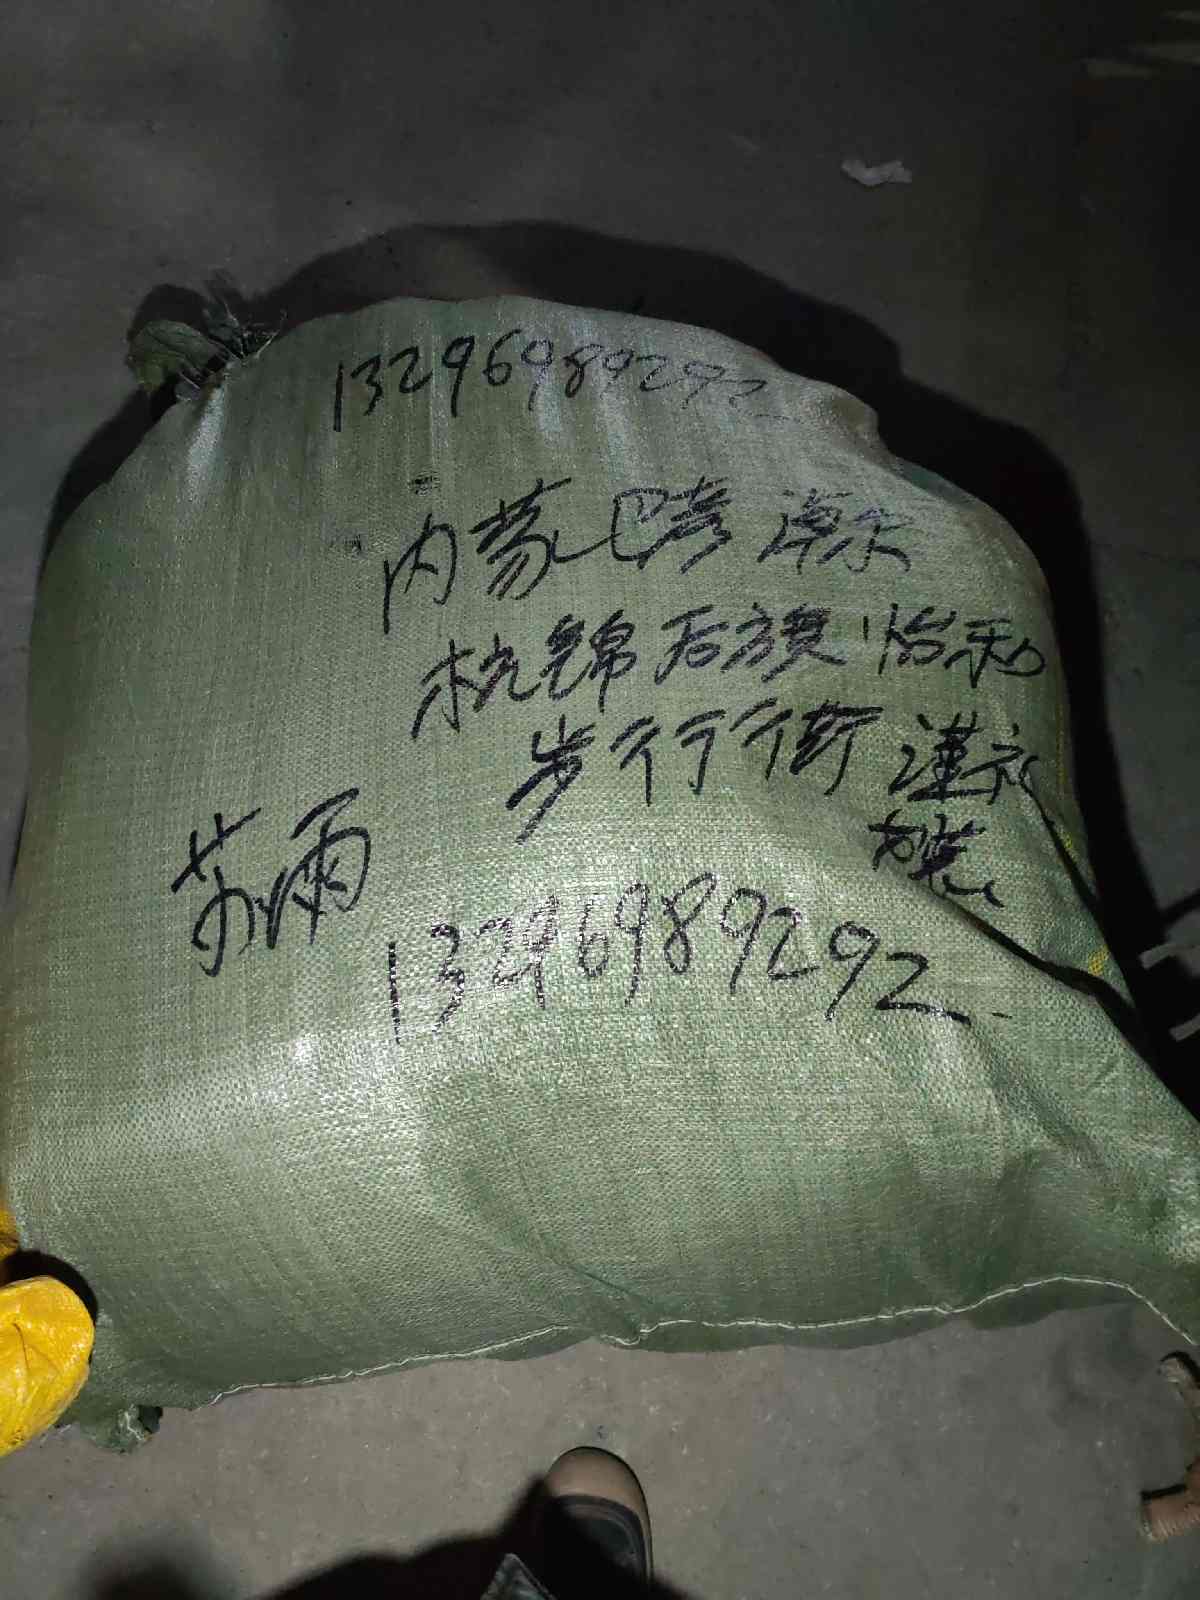 13296989292
内蒙巴彦淖尔
杭锦后旗怡和
步行街谨衣
苏雨
13296989292